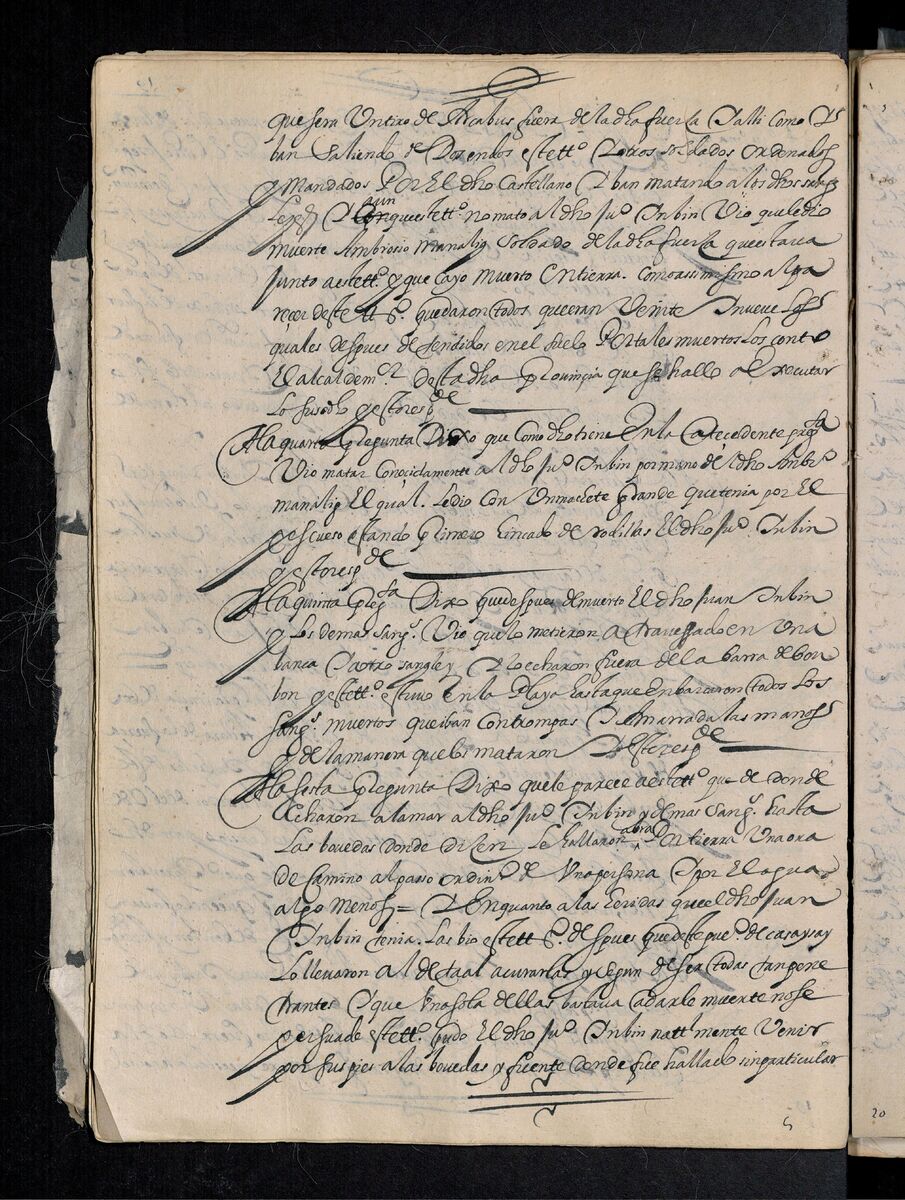 que sera Un tiro de Arcabus fuera de la dha fuerça Y alli como Y
ban Saliendo de Dozenbos este tto Y otros soldados ordenados
y Mandados Por El dho Castellano Yban matando a los dhos sang
leyes Y aunque este tto no mato al dho Juo Inbin Vio que le dio
muerte Ambrosio Manalig Soldado de la dha fuerça que estava
junto a este tto y que Cayo Muerto En tierra. Como assimismo al pa
reçer deste tto quedaron todos que eran Veinte Y nueve Los
quales despues de tendidos en el suelo Por tales muertos Los conto
El alcalde mor desta dha Provinçia que se hallo al executar
Lo susodho y esto respde
A la quarta Pregunta Dixo que Como dho tiene En la antecedente pregta
Vio matar Conoçidamente al dho Juo Inbin por mano del dho Ambro
manalig El qual. Le dio Con Un machete grande que tenia por El
pescueso estando Primero hincado de Rodillas El dho Juo Inbin
y esto respde
A la quinta Pregta Dixo que despues de muerto El dho Juan Inbin
y Los demas sangs. Vio que lo metieron Atravessado en Una
banca Y a otro sangley Y lo echaron fuera de la barra de Bon
bon y este tto estuvo En la Playa hasta que enbarcaron todos Los
sangs. muertos que iban Con tronpas Y amarradas las manos
y de la manera que los mataron Y esto respde
A la sesta Pregunta Dixo que le parece a este tto que de donde
Echaron a la mar al dho Juo Inbin y demas Sangs. hasta
Las bouedas donde diçen Le hallaron abra En tierra Una ora
de Camino al passo ordino de Una persona Y por El agua
algo menos = Y En quanto a las heridas que el dho Juan
Inbin tenia. Las bio este tto despues que deste pueo de casaysay
Lo llevaron al de taal a curarlas y segun de ser todas tan pene
trantes Y que Una sola dellas bastava a darle muerte no se
persuade este tto pudo El dho Juo Inbin nattmente Venir
por sus pies a las bouedas y fuente donde fue hallado sin particular
20